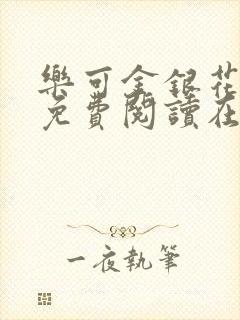 樂可金銀花
免費閱讀在
一夜執筆